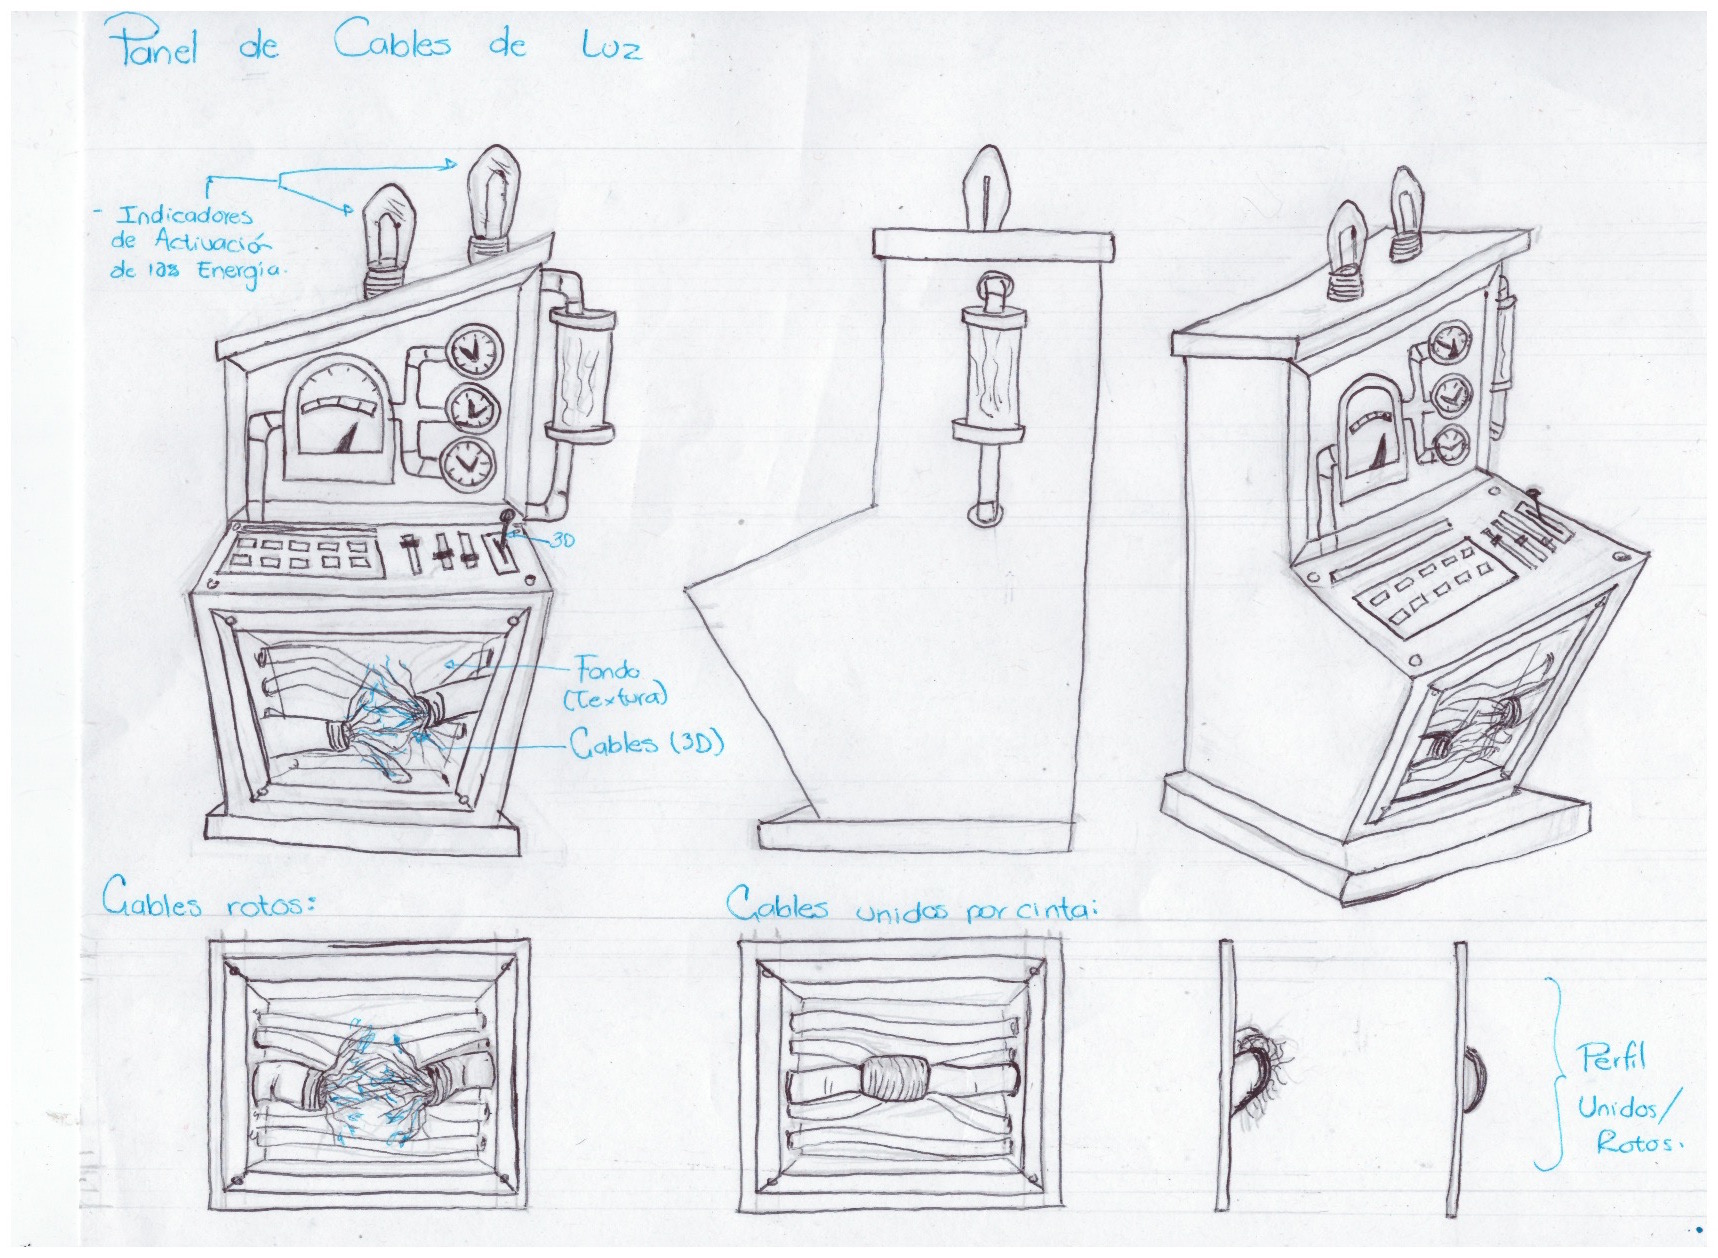 Panel de Cables de Luz
- Indicadores
de Activación
de las Energía.
3D
Fondo
(Textura)
Cables (3D)
Cables rotos:
Cables unidos por cinta:
Perfil
Unidos/
Rotos.